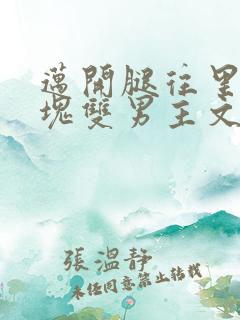 邁開腿往里
塊雙男主文
張溫靜
未经同意禁止转载